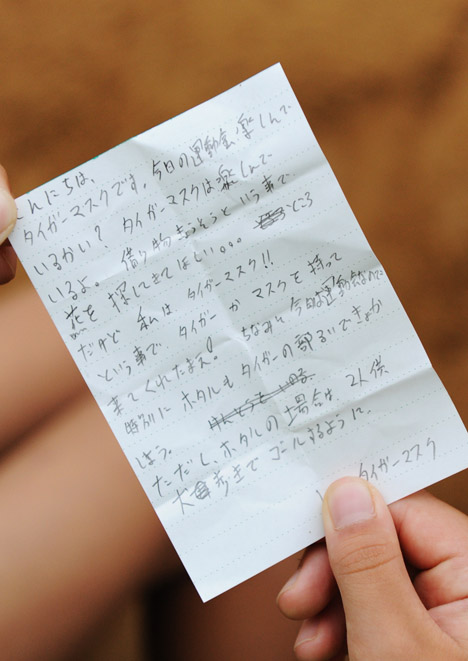 こんにちは、
タイガーマスクです。今日の運動会楽しんで
いるかい？タイガーマスクは楽しんで
いるよ。借り物きょうそうという事で
花を探してきてほしい。。。ところ
だけど私はタイガーマスク!!
という事でタイガーかマスクを持って
来てくれたまえ! ちなみに今日は運動会なので
特別にホタルもタイガーの部るいできょか
しよう。
ただし、ホタルの場合は、2人供
犬歩きでゴールするように。
タイガーマスク